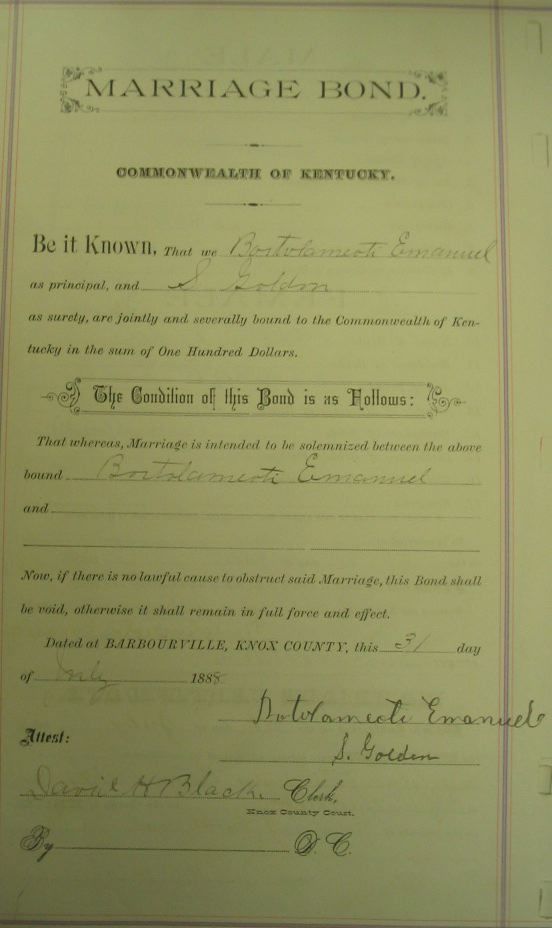 MARRIAGE BOND.
COMMONWEALTH OF KENTUCKY.
Be it Known, That we Bortolameoti Emanuel
as principal, and S Golden
as surety, are jointly and severally bound to the Commonwealth of Ken-
tucky in the sum of One Hundred Dollars.
The Condition of this Bond is as Follows:
That whereas, Marriage is intended to be solemnized between the above
bound Bortolameoti Emanuel
and
Now, if there is no lawful cause to obstruct said Marriage, this Bond shall
be void, otherwise it shall remain in full force and effect.
Dated at BARBOURVILLE, KNOX COUNTY, this 31 day
of July 1888
Botolameoti Emanuel
Attest:
S. Golden
David H Black, Clerk,
Knox County Court.
By D. C.